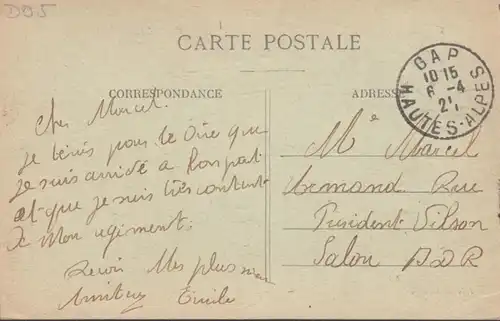 D05
CARTE POSTALE
CORRESPONDANCE
ADRESSE
GAP
10 15
6 -4
21
HAUTES-ALPES
Cher Marcel.
Je t'écris pour te dire que
je suis arrivé à bon port
et que je suis très content
de Mon régiment.
Reçoi Mes plus
Amitiés Emile
Me Marcel
Armand Rue
Président Vilson
Salon BDR